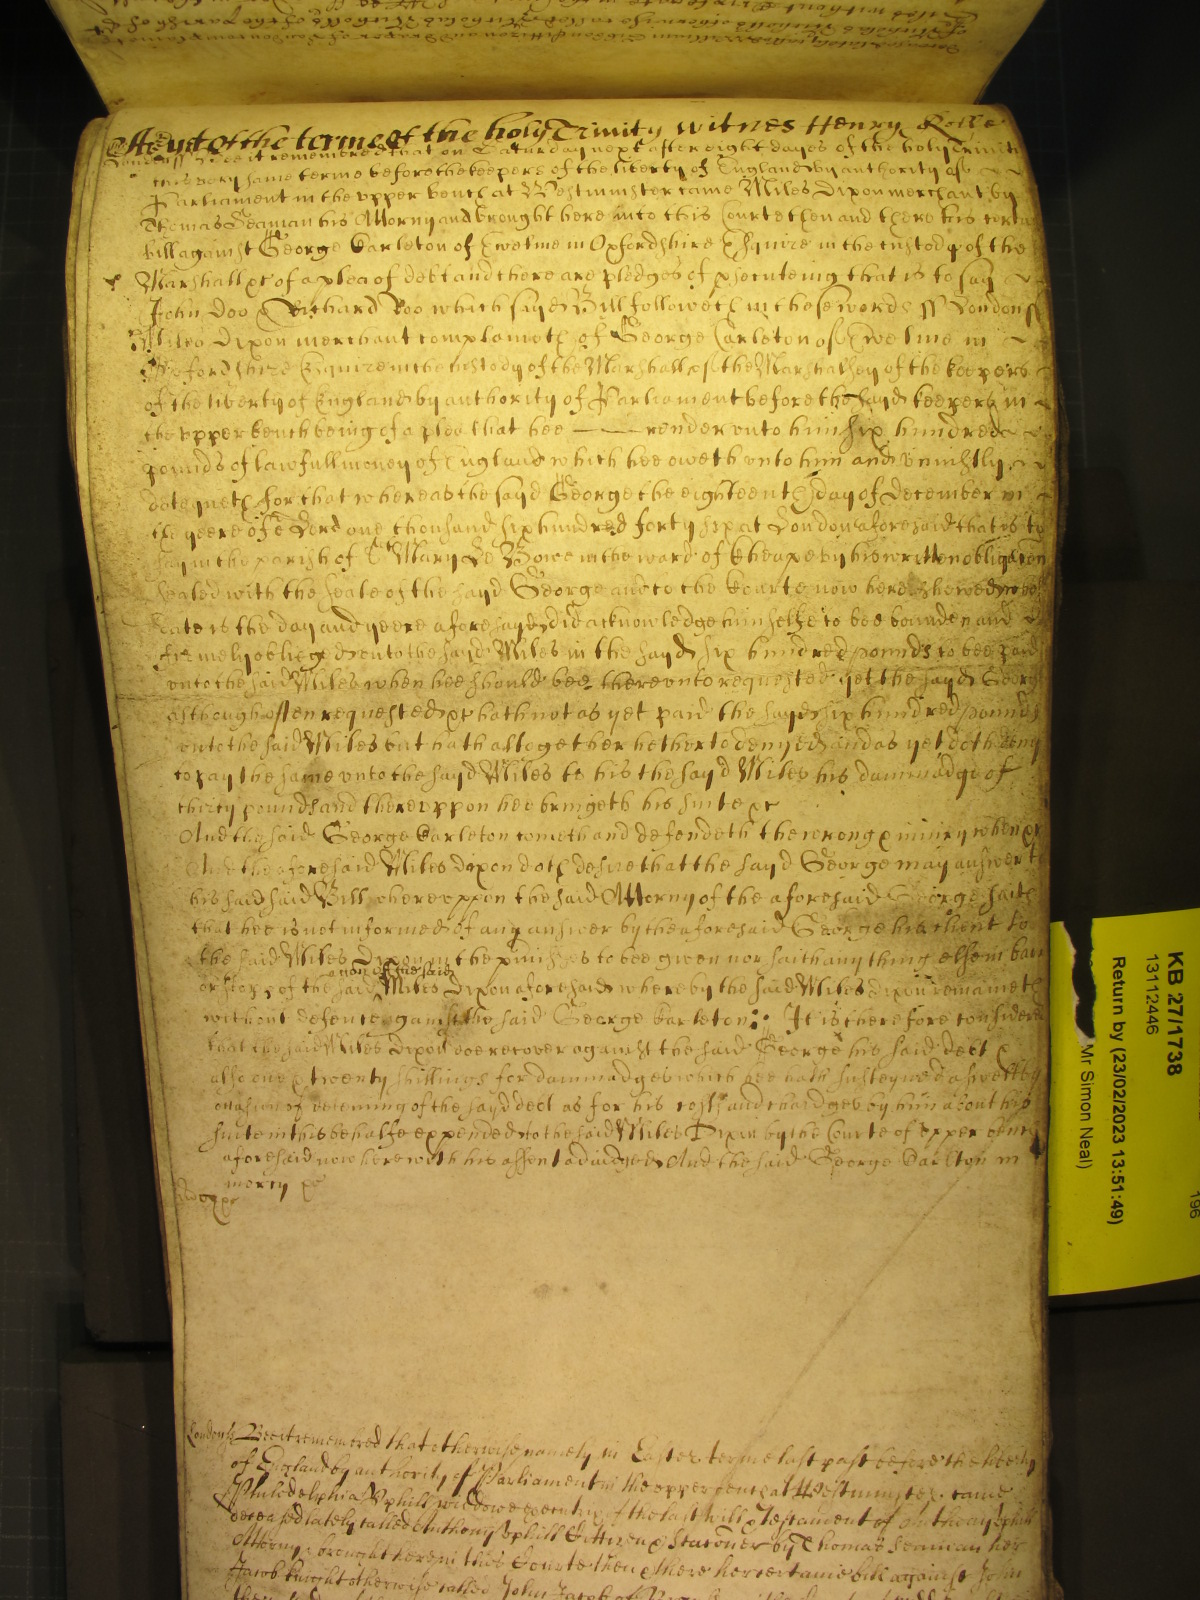 As yet of the terme of the holy Trinity witnes Henry Rolle
London ss Bee it remembred that on Saturday next after eight dayes of the holy Trinitie
this very same terme before the keepers of the liberty of England by authority of
Parliament in the upper bench at Westminster came Miles Dixon merchant by
Thomas Seaman his Attorny and brought here into this Courte then and there his certaine
bill against George Carleton of Ewelme in Oxfordshire Esquire in the custody of the
Marshall &c of a plea of debt and there are pledges of prosecuteing that is to say
John Doo & Richard Roo which sayd Bill followeth in these words ss London ss
Miles Dixon merchant complaineth of George Carleton of Ewelme in
Oxfordshire Esquire in the custody of the Marshall of the Marshalsey of the keepers
of the liberty of England by authority of Parliament before the sayd keepers in
the upper bench being of a plea that hee render unto him six hundred
pounds of lawfull money of England which hee oweth unto him and uniustly
deteyneth for that whereas the sayd George the eighteenth day of December in
the yeere of our Lord one thousand six hundred forty six at London aforesaid that is to
say in the parish of St Mary Le Bowe in the ward of Cheape by his written obligation
sealed with the seale of the sayd George and to the Courte now here shewed whose
date is the day and yeere aforesayd did acknowledge himselfe to bee bounden and
firmely obliegd unto the sayd Miles in the sayd six hundred pounds to bee paid
unto the said Miles when hee should bee thereunto requested yet the sayd George
although often requested &c hath not as yet paid the sayd six hundred pounds
unto the said Miles but hath altogether hetherto denyed and as yet doth deny
to pay the same unto the sayd Miles to his the sayd Miles his dammadge of
thirty pounds and thereuppon hee bringeth his suite &c
And the said George Carleton cometh and defendeth the wrong & iniury when &c
And the aforesaid Miles Dixon doth desire that the sayd George may answer to
his said said Bill whereuppon the said Attorny of the aforesaid George saith
that hee is not informed of any answer by the aforesaid George his client to
the said Miles Dixon in the premisses to bee given nor saith any thing else in barr
accon of the said
or stop of the said Miles Dixon aforesaid whereby the said Miles Dixon remaineth
without defence against the said George Carleton It is therefore considered
that the said Miles Dixon doe recover against the said George his said debt &
also one & twenty shillings for dammadges which hee hath susteyned aswell by
occasion of deteining of the sayd debt as for his costs and chardges by him about his
suite in this behalfe expended to the said Miles Dixon by the Courte of upper bench
aforesaid now here with his assent adiudged And the said George Carlton in
mercy &c
London ss Bee it remembred that otherwise namely in Easter terme last past before the liberty
of England by authority of Parliament in the upper bench at Westminster came
Philadelphia Uphill widdowe executrix of the last will & Testament of Anthony Uphill
deceased lately called Anthony Uphill Cittizen & Stacioner by Thomas Seaman her
Attorny & brought here in this Courte then & there her certaine bill against John
Jacob knight otherwise called John Jacob of
KB 27/1738
13112446
Return by (23/02/2023 13:51:49)
Mr Simon Neal)
196